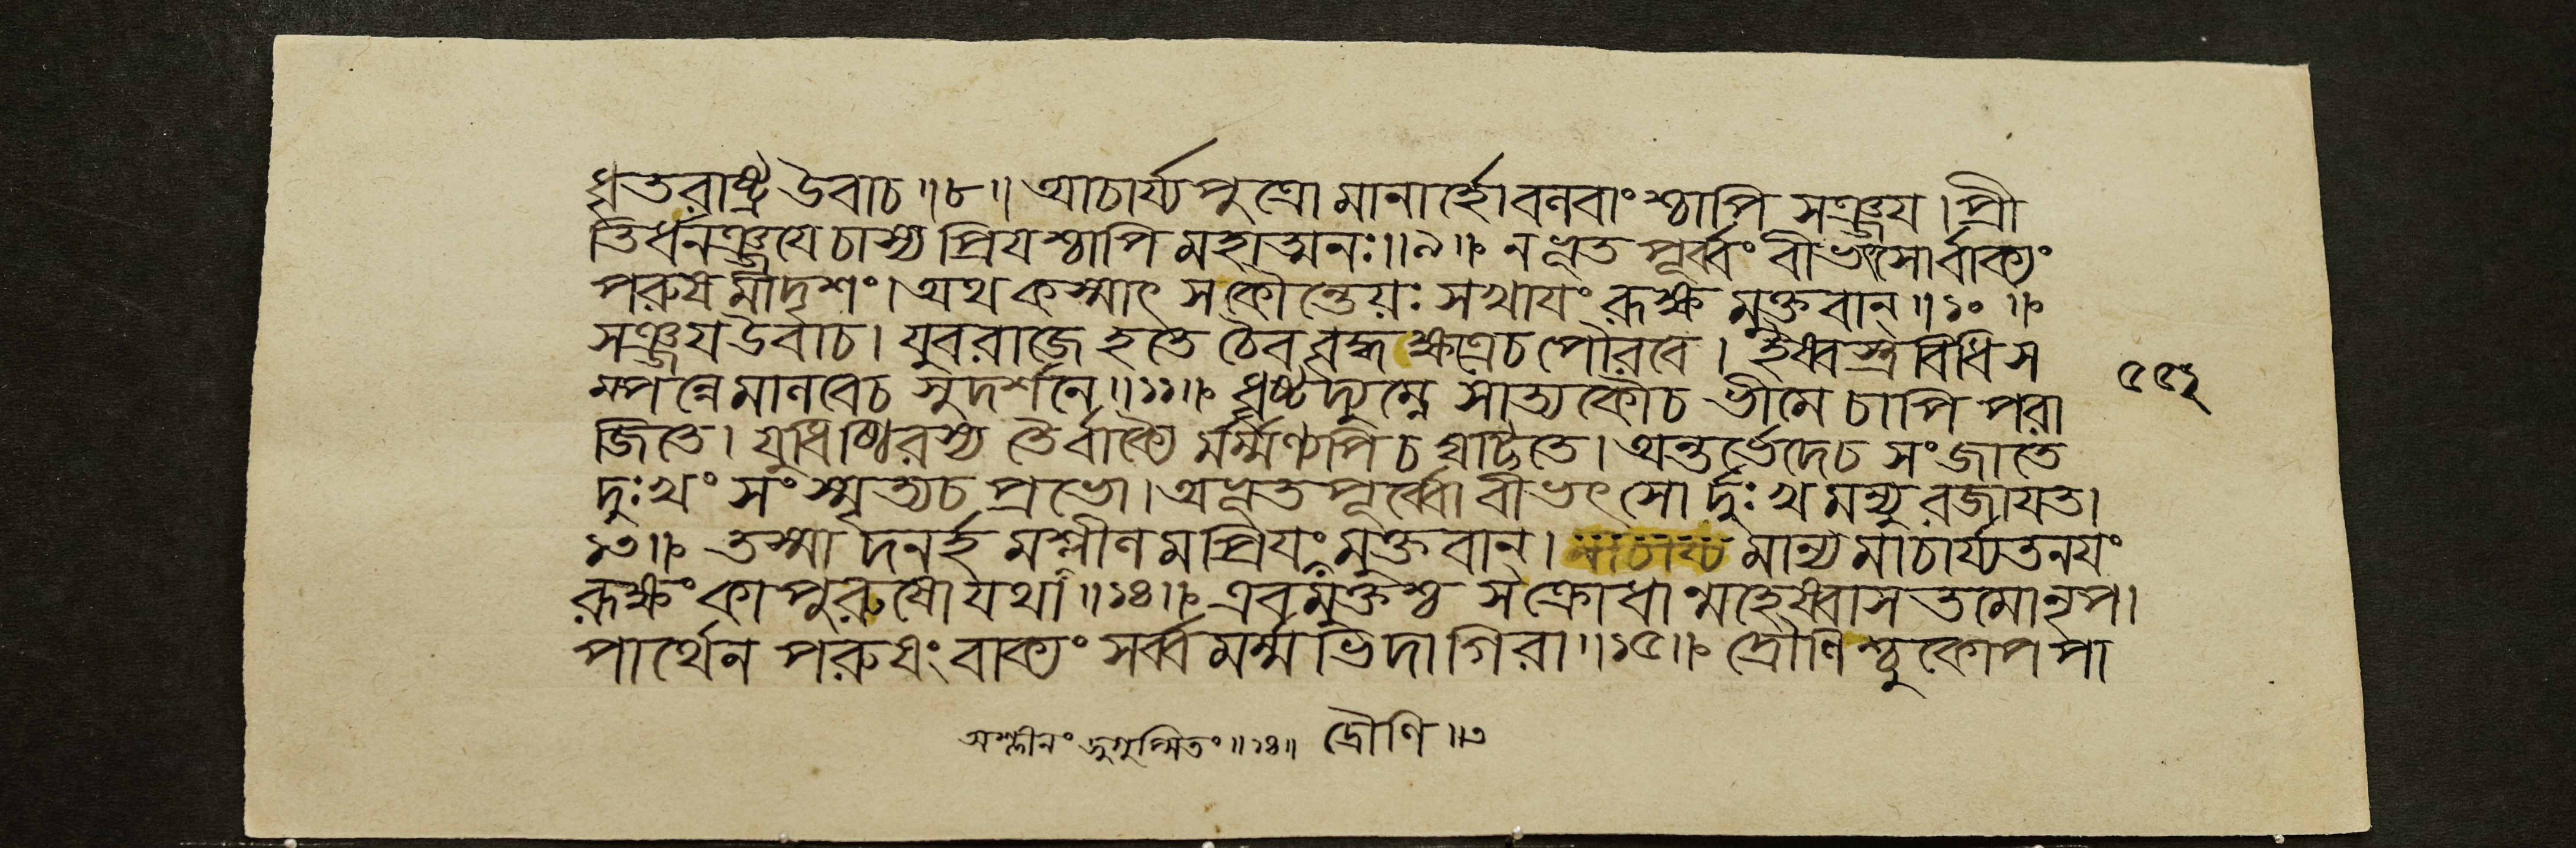 ধৃতরাষ্ট্র উবাচ॥৮॥ আচার্য্যপুত্রো মানার্হো বলবাংশ্চাপি সঞ্জয। প্রী
তির্ধনঞ্জযে চাস্য প্রিযশ্চাপি মহাত্মনঃ॥৯॥ ন ভূতপূর্ব্বং বীভৎসোর্বাক্যং
পরুষমীদৃশং। অথ কস্মাৎ স কৌন্তেয়ঃ সখাযং রূক্ষমুক্তবান্॥১০॥
সঞ্জয উবাচ। যুবরাজে হতে চৈব বৃহৎক্ষত্রে চ পৌরবে। ইষ্বস্ত্রবিধিস
ম্পন্নে মালবে চ সুদর্শনে॥১১॥ ধৃষ্টদ্যুম্নে সাত্যকৌ চ ভীমে চাপি পরা
জিতে। যুধিষ্ঠিরস্য তৈর্বাক্যৈর্মর্ম্মণ্যপি চ ঘাটিতে। অন্তর্ভেদে চ সংজাতে
দুঃখং সংস্মৃত্য চ প্রভো। অভূতপূর্ব্বো বীভৎসোর্দুঃখমন্যুরজাযত।
১৩॥ তস্মাদনর্হমশ্লীলমপ্রিযং মুক্তবান্। মান্যমাচার্য্যতনযং
রূক্ষং কাপুরুষো যথা॥১৪॥ এবমুক্তশ্চ স ক্রোধান্মহেষ্বাসতমো নৃপ।
পার্থেন পরুষং বাক্যং সর্ব্বমর্ম্মভিদা গিরা॥১৫॥ দ্রৌণিশ্চুকোপ পা
৫৫২
অশ্লীলং জুগুপ্সিতং॥১৪॥ দ্রৌণি॥৩